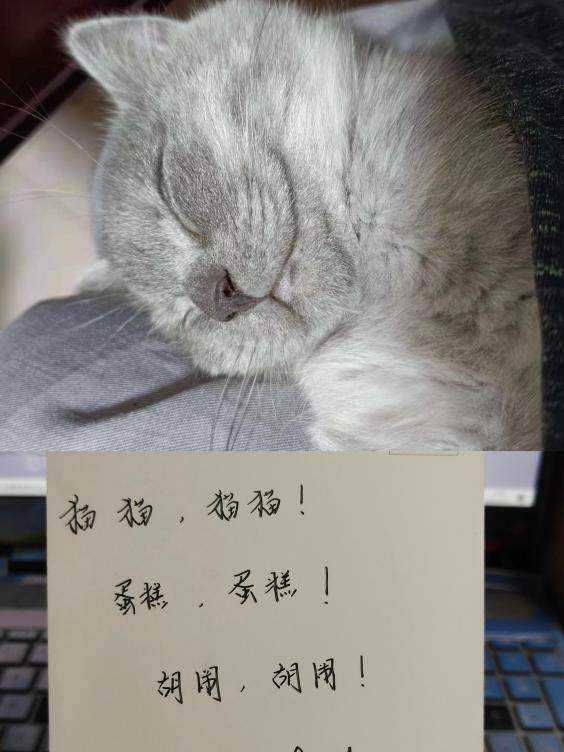 猫猫，猫猫！
蛋糕，蛋糕！
胡闹，胡闹！